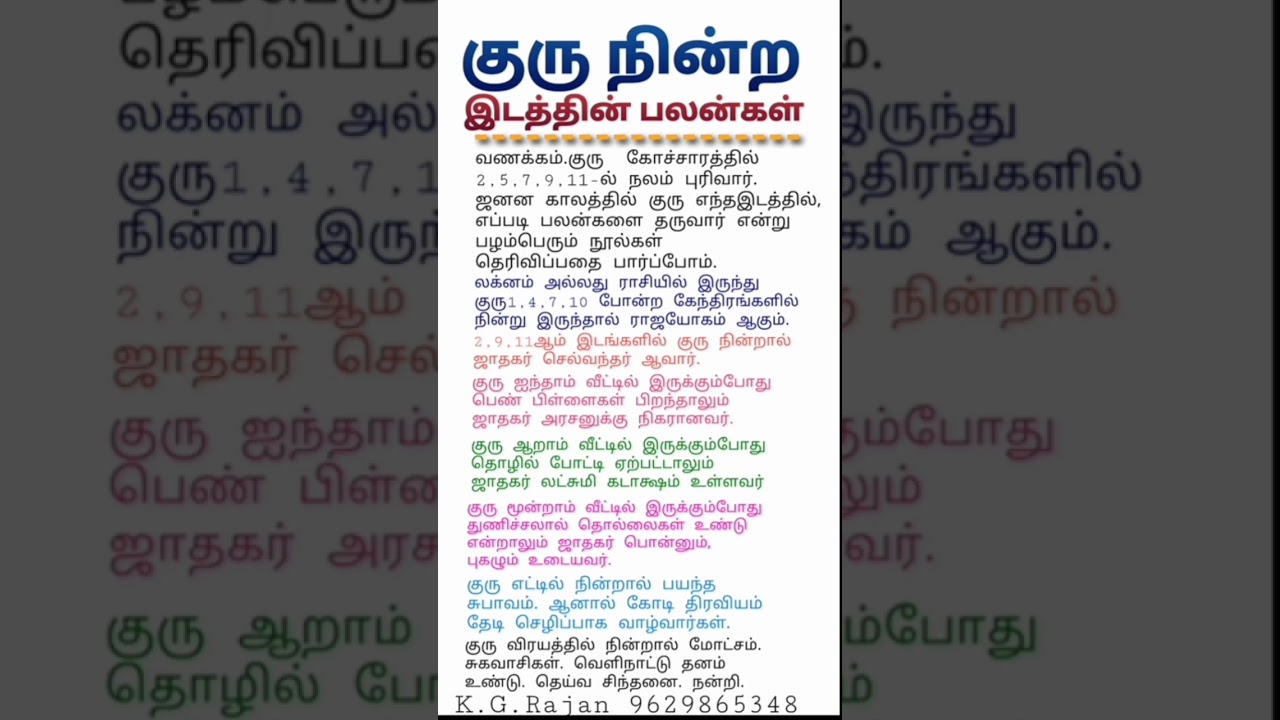 குரு நின்ற
இடத்தின் பலன்கள்
வணக்கம்.குரு கோச்சாரத்தில்
2,5,7,9,11-ல் நலம் புரிவார்.
ஜனன காலத்தில் குரு எந்தஇடத்தில்,
எப்படி பலன்களை தருவார் என்று
பழம்பெரும் நூல்கள்
தெரிவிப்பதை பார்ப்போம்.
லக்னம் அல்லது ராசியில் இருந்து
குரு1,4,7,10 போன்ற கேந்திரங்களில்
நின்று இருந்தால் ராஜயோகம் ஆகும்.
2,9,11ஆம் இடங்களில் குரு நின்றால்
ஜாதகர் செல்வந்தர் ஆவார்.
குரு ஐந்தாம் வீட்டில் இருக்கும்போது
பெண் பிள்ளைகள் பிறந்தாலும்
ஜாதகர் அரசனுக்கு நிகரானவர்.
குரு ஆறாம் வீட்டில் இருக்கும்போது
தொழில் போட்டி ஏற்பட்டாலும்
ஜாதகர் லட்சுமி கடாக்ஷம் உள்ளவர்
குரு மூன்றாம் வீட்டில் இருக்கும்போது
துணிச்சலால் தொல்லைகள் உண்டு
என்றாலும் ஜாதகர் பொன்னும்,
புகழும் உடையவர்.
குரு எட்டில் நின்றால் பயந்த
சுபாவம். ஆனால் கோடி திரவியம்
தேடி செழிப்பாக வாழ்வார்கள்.
குரு விரயத்தில் நின்றால் மோட்சம்.
சுகவாசிகள். வெளிநாட்டு தனம்
உண்டு. தெய்வ சிந்தனை. நன்றி.
K.G.Rajan 9629865348